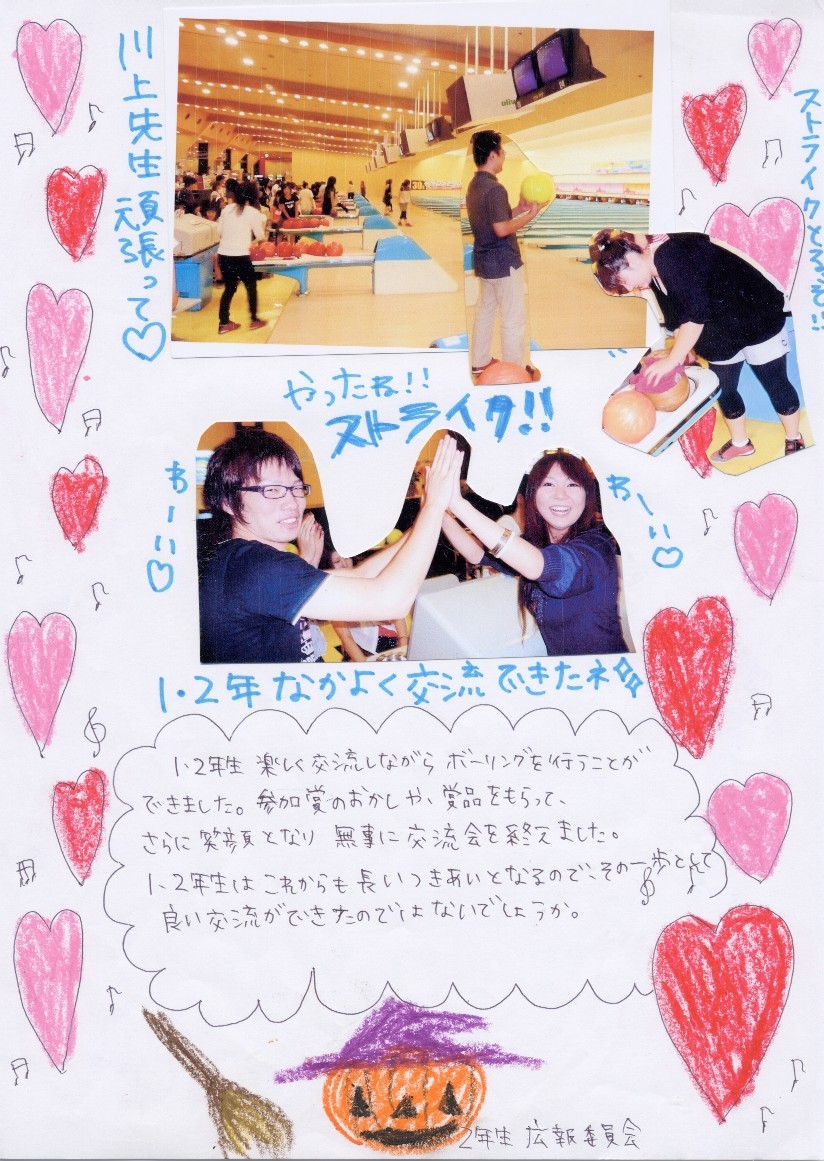 川上先生頑張って♡
ストライクとるぞ!!
やったね!!
ストライク!!
わーい♡
わーい♡
1・2年なかよく交流できたネ☆☆
1・2年生 楽しく交流しながら ボーリングを行うことが
できました。参加賞のおかしや、賞品をもらって、
さらに笑顔となり 無事に交流会を終えました。
1、2年生はこれからも長いつきあいとなるので、その一歩として
良い交流ができたのではないでしょうか。
2年生 広報委員会